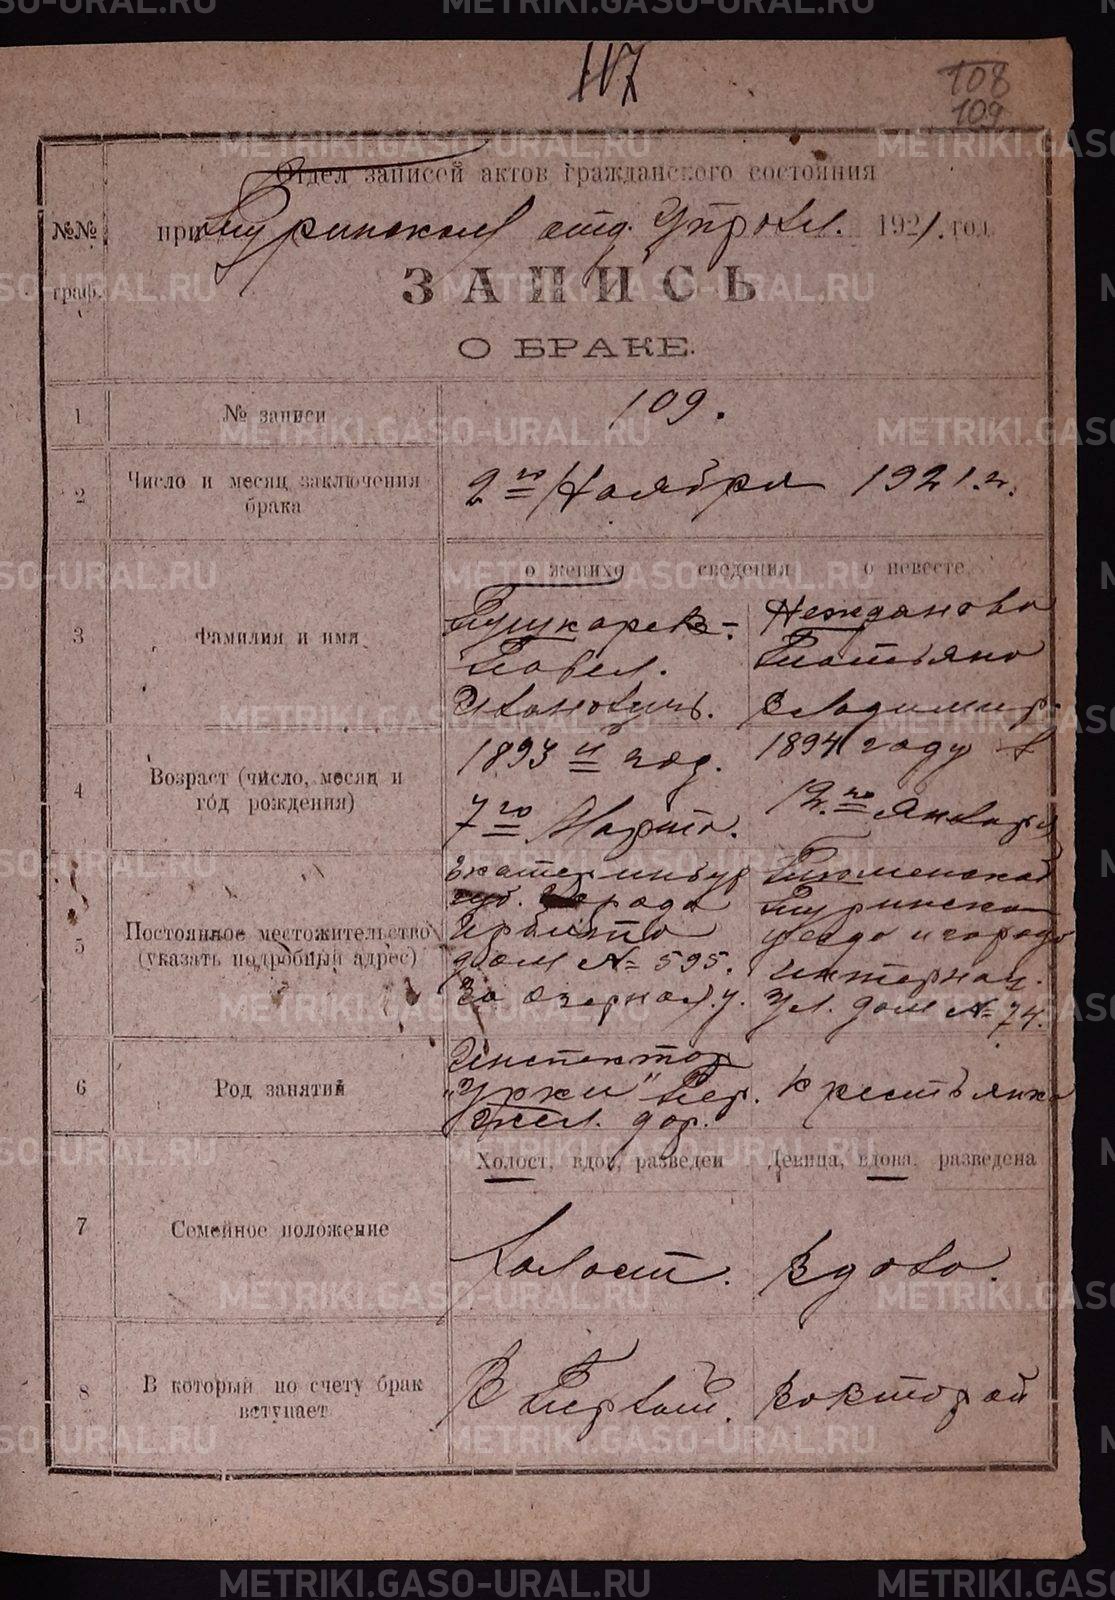 117
108
109
Отдел записей актов гражданского состояния
№№ граф.
при Туринском отд. Управл. 1921 год
ЗАПИСЬ
О БРАКЕ.
1 № записи 109.
2 Число и месяц заключения брака
2го Ноября 1921 г.
о женихе сведения о невесте
3 Фамилия и имя
Пушкарев-
Павел.
Ивановичь.
Нежданова
Татьяна
Владимир.
4 Возраст (число, месяц и
год рождения)
1893й год.
7го Марта.
1894 году
12.го Января
5 Постоянное местожительство
(указать подробный адрес)
Екатеринбур
губ. города
Ирбита
дом № 595.
За озерной. у.
Тюменской
Туринска
уезда и города
интернац.
Ул. дом № 74.
6 Род занятий
Инспектор
"Урки" Пер.
жел. дор.
Крестьянка
7 Семейное положение
Холост, вдов, разведен Девица, вдова, разведена
Холост. Вдова.
8 В который по счету брак
вступает
В Первый. Вовторой
METRIKI.GASO-URAL.RU